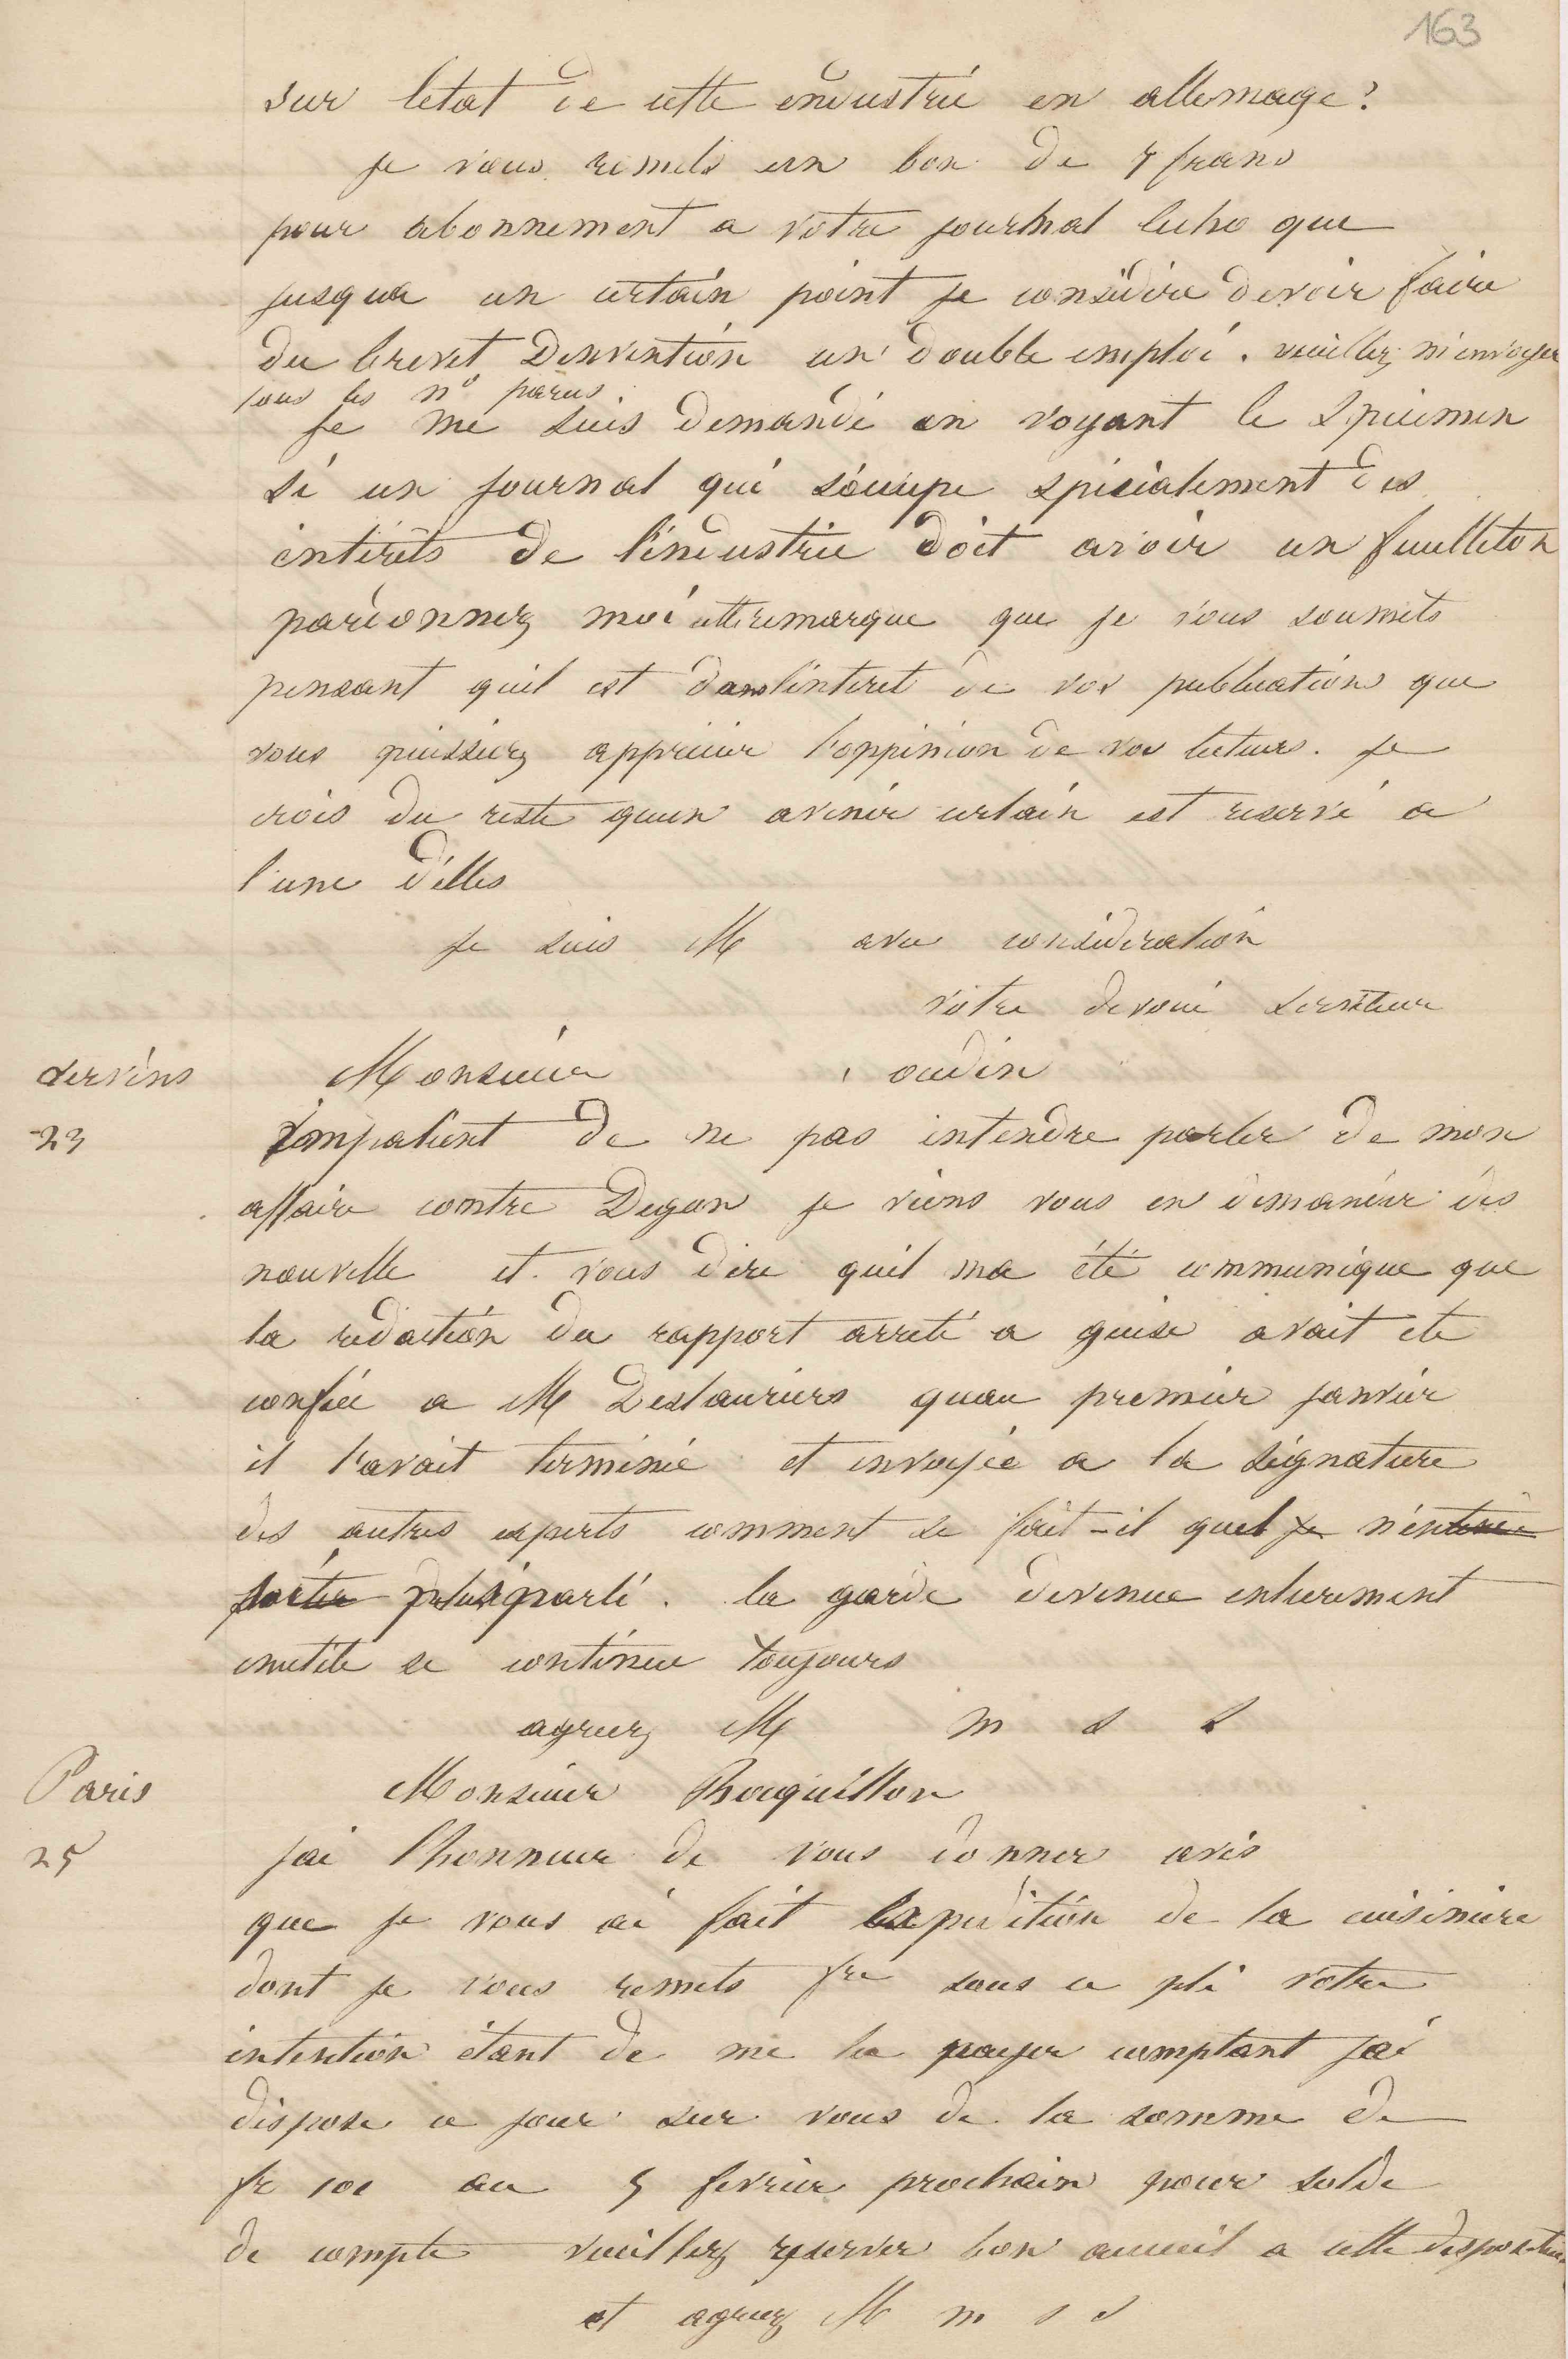 163
sur letat de cette industrie en allemage?
je vous remets un bon de 7 frans
pour abonnement a votre journal lecho que
jusqua un certain point je considère devoir faire
du brevet Dinvention un double emploi. veuillez m'envoyer
tous les nº parus
je me suis demandé en voyant le spécimen
si un journal qui s'occupe spécialement des
intérêts de l'industrie doit avoir un feuilleton
pardonnez moi cette remarque que je vous soumets
pensant quil est dans l'interet de vos publications que
vous puissiez apprécier l'oppinion de vos lecteurs. je
crois du reste quun avenir certain est reservé a
l'une d'elles
je suis M avec considération
votre devoué serviteur
Vervins Monsieur oudin
23 Impatient de ne pas entendre parler de mon
affaire contre Degon je viens vous en demander des
nouvelle et vous dire quil ma été communique que
la rédaction du rapport arreté a guise avait ete
confiée a M Deslauriers quau premier janvier
il l'avait terminée et envoyée a la signature
des autres experts comment se fait-il quel je n'entende
parler plus parlé. la garde devenue entierement
inutile se continue toujours
agreez M m s s
Paris Monsieur Rouquillon
25 jai l'honneur de vous donner avis
que je vous ai fait lexpédition de la cuisiniere
dont je vous remets fre sous ce pli votre
intention étant de me la payer comptant jai
dispose ce jour sur vous de la somme de
fr 100 au 5 fevrier prochain pour solde
de compte veuillez reserver bon accueil a cette disposition
et agreez M m s s